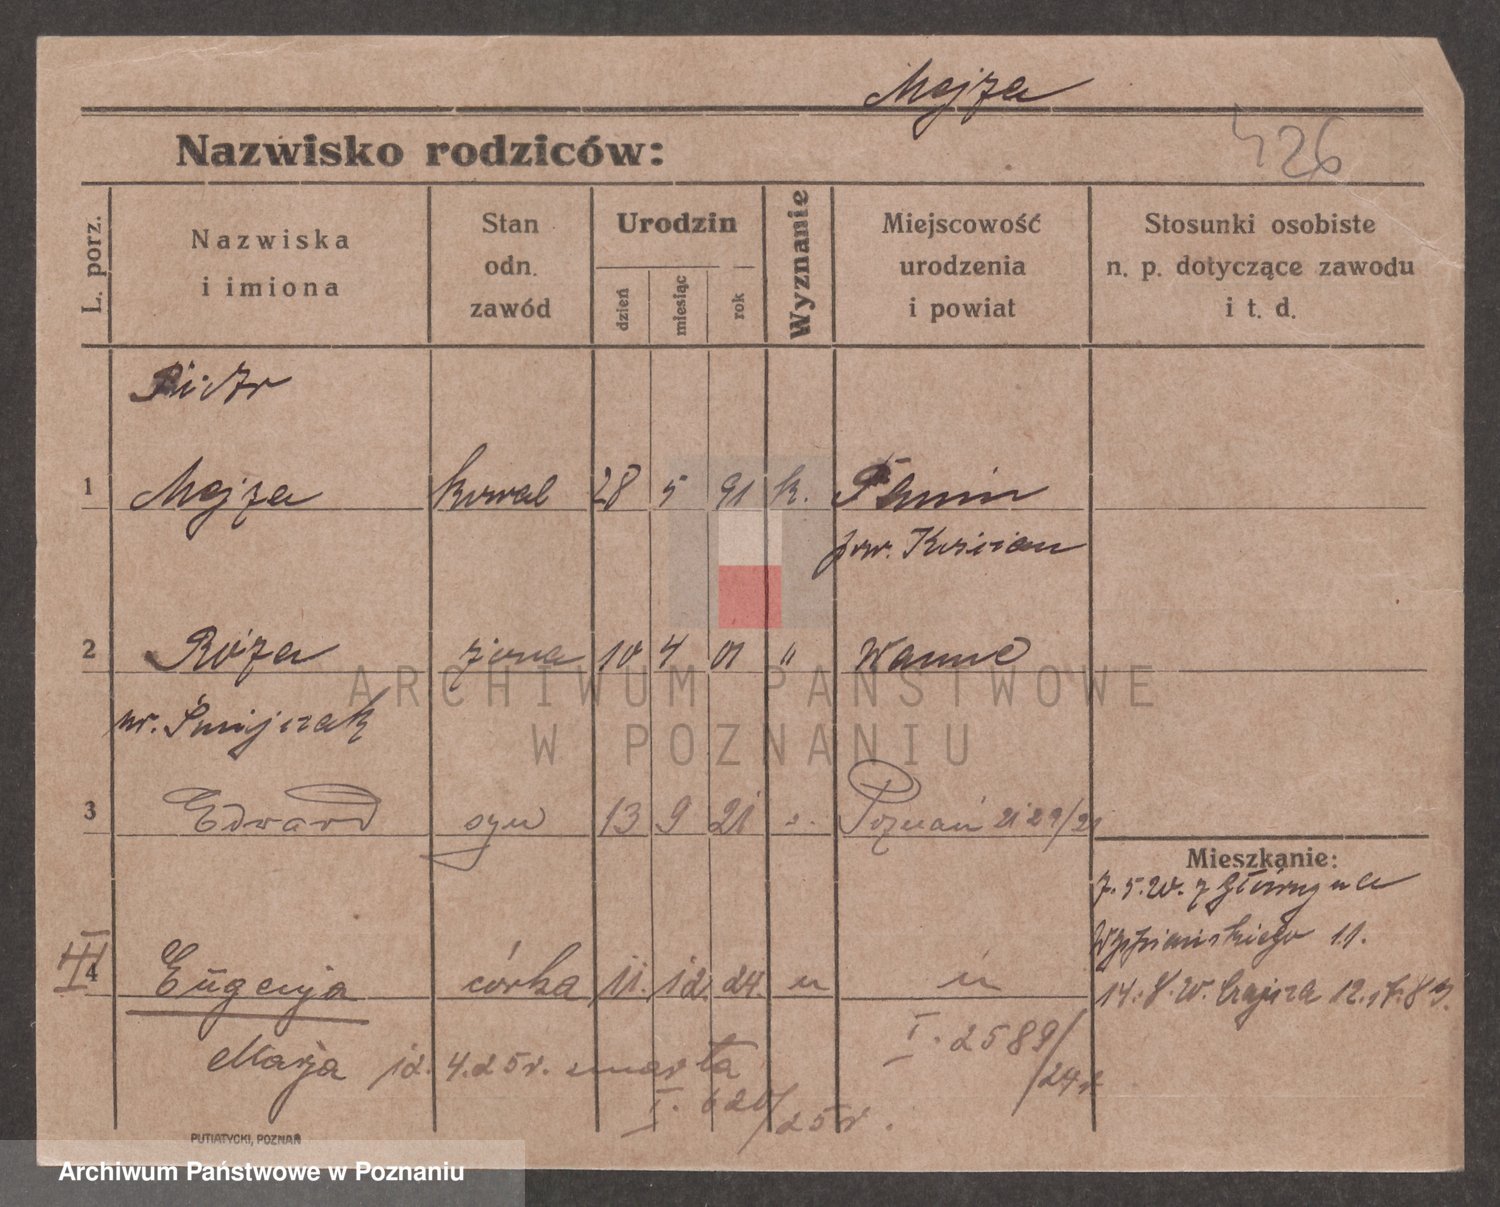 Mojza
426
Nazwisko rodziców:
L. porz.
Nazwiska
i imiona
Stan
odn.
zawód
Urodzin
dzień
miesiąc
rok
Wyznanie
Miejscowość
urodzenia
i powiat
Stosunki osobiste
n. p. dotyczące zawodu
i t. d.
Piotr
1 Mojza kowal 28 5 91 k.
pow. Kościan
2 Róża żona 10 4 01 " Wanne
ur.
3 Edward syn 13 9 21 Poznań 2129/21
Mieszkanie:
7. 5. 20. z
Wyspiańskiego 11.
III
4 Eugenja córka 11. 12. 24. " "
14. 8. 20. Czajcza 12. 83.
I. 2589/24 r.
Marja 12. 4. 25 r. umarła
I. 620/25 r.
PUTIATYCKI, POZNAŃ
ARCHIWUM PAŃSTWOWE
W POZNANIU
Archiwum Państwowe w Poznaniu